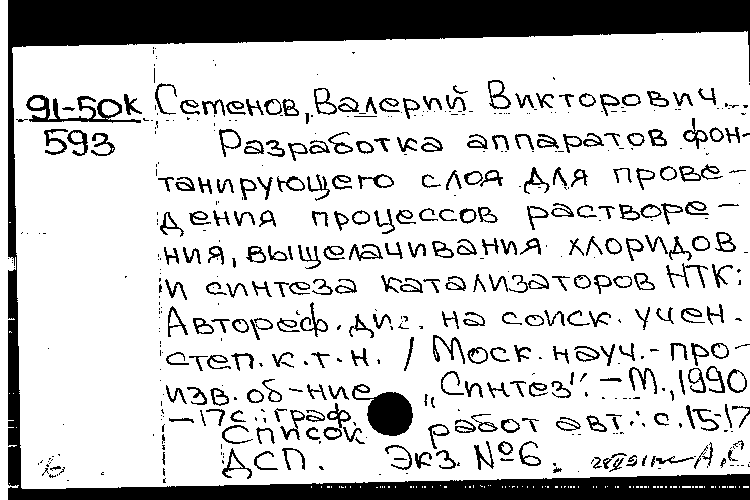 91-50к Сетенов, Валерий Викторович.
593 Разработка аппаратов фон-
танирующего слоя для прове-
дения процессов растворе-
ния, выщелачивания хлоридов
и синтеза катализаторов НТК:
Автореф. дис. на соиск. учен.
степ. к. т. н. / Моск. науч.-про-
изв. об-ние „Синтез“. – М., 1990
– 17 с.: граф.
Список работ авт.: с. 15-17
ДСП. Экз. №6.